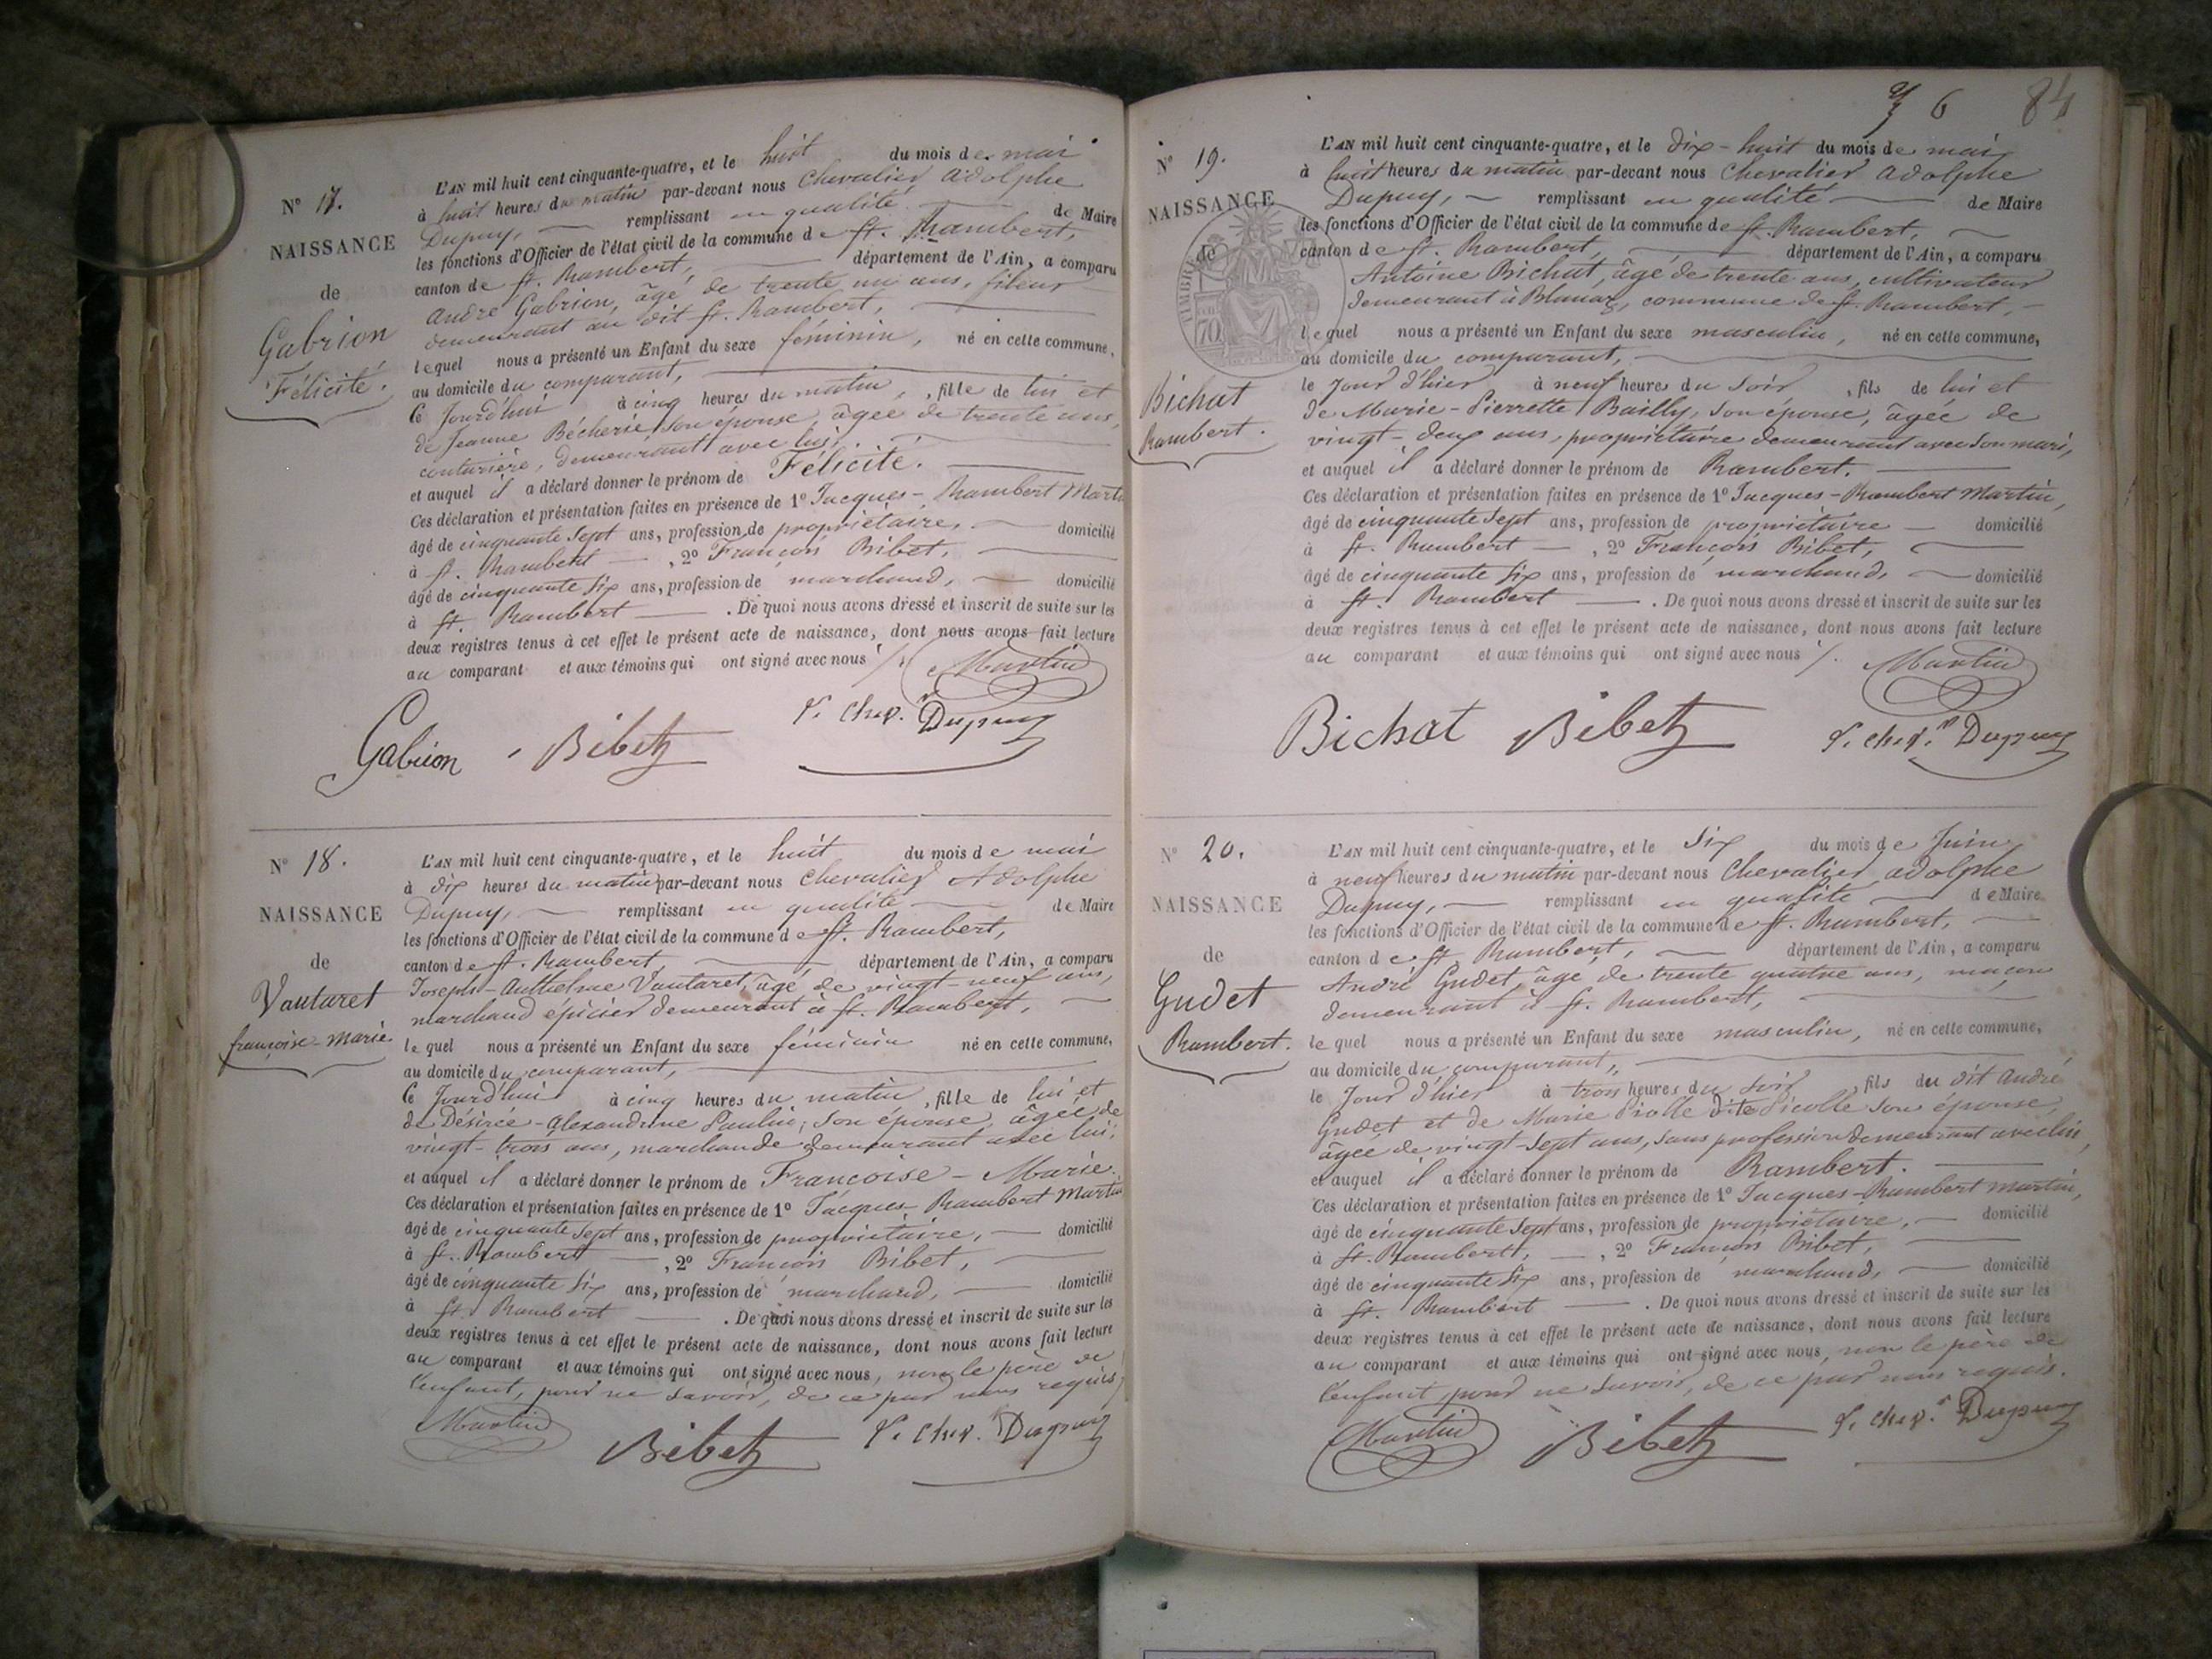 N° 17.
NAISSANCE
de
Gabrion
Félicité.
L'AN mil huit cent cinquante-quatre, et le huit du mois de mai
à huit heures du matin par-devant nous Chevalier Adolphe
Dupuy, remplissant en qualité de Maire
les fonctions d'Officier de l'état civil de la commune de St. Rambert,
canton de St. Rambert, département de l'Ain, a comparu
André Gabrion, âgé de trente un ans, fileur
demeurant au dit St. Rambert,
lequel nous a présenté un Enfant du sexe féminin, né en cette commune,
au domicile du comparant,
Ce Jourd'hui à cinq heures du matin, fille de lui et
de Jeanne Bécherie son épouse, âgée de trente ans,
couturière, demeurant avec lui,
et auquel il a déclaré donner le prénom de Félicité.
Ces déclaration et présentation faites en présence de 1° Jacques-Rambert Martin
âgé de cinquante sept ans, profession de propriétaire, domicilié
à St. Rambert, 2° François Bibet,
âgé de cinquante six ans, profession de marchand, domicilié
à St. Rambert. De quoi nous avons dressé et inscrit de suite sur les
deux registres tenus à cet effet le présent acte de naissance, dont nous avons fait lecture
au comparant et aux témoins qui ont signé avec nous /.
Martin
Gabrion Bibet Dupuy
N° 18.
NAISSANCE
de
Vautaret
françoise-Marie.
L'AN mil huit cent cinquante-quatre, et le huit du mois de mai
à dix heures du matin par-devant nous Chevalier Adolphe
Dupuy, remplissant en qualité de Maire
les fonctions d'Officier de l'état civil de la commune de St. Rambert,
canton de St. Rambert, département de l'Ain, a comparu
Joseph-Anthelme Vautaret, âgé de vingt-neuf ans,
marchand épicier demeurant à St. Rambert,
lequel nous a présenté un Enfant du sexe féminin né en cette commune,
au domicile du comparant,
Ce Jourd'hui à cinq heures du matin, fille de lui et
de Désirée-Alexandrine Paulin, son épouse, âgée de
vingt-trois ans, marchande demeurant avec lui,
et auquel il a déclaré donner le prénom de Françoise-Marie.
Ces déclaration et présentation faites en présence de 1° Jacques-Rambert Martin
âgé de cinquante sept ans, profession de propriétaire, domicilié
à St. Rambert, 2° François Bibet,
âgé de cinquante six ans, profession de marchand, domicilié
à St. Rambert. De quoi nous avons dressé et inscrit de suite sur les
deux registres tenus à cet effet le présent acte de naissance, dont nous avons fait lecture
au comparant et aux témoins qui ont signé avec nous, non le père de
l'enfant, pour ne savoir, de ce par nous requis
Martin Bibet Dupuy
6 84
N° 19.
NAISSANCE
de
TIMBRE
70
Bichat
Rambert.
L'AN mil huit cent cinquante-quatre, et le dix-huit du mois de mai
à huit heures du matin par-devant nous Chevalier Adolphe
Dupuy, remplissant en qualité de Maire
les fonctions d'Officier de l'état civil de la commune de St. Rambert,
canton de St. Rambert, département de l'Ain, a comparu
Antoine Bichat, âgé de trente ans, cultivateur
demeurant à Blanaz, commune de St. Rambert,
lequel nous a présenté un Enfant du sexe masculin, né en cette commune,
au domicile du comparant,
le Jour d'hier à neuf heures du soir, fils de lui et
de Marie-Pierrette Bailly, son épouse, âgée de
vingt-deux ans, propriétaire demeurant avec son mari,
et auquel il a déclaré donner le prénom de Rambert.
Ces déclaration et présentation faites en présence de 1° Jacques-Rambert Martin,
âgé de cinquante sept ans, profession de propriétaire domicilié
à St. Rambert, 2° François Bibet,
âgé de cinquante six ans, profession de marchand, domicilié
à St. Rambert. De quoi nous avons dressé et inscrit de suite sur les
deux registres tenus à cet effet le présent acte de naissance, dont nous avons fait lecture
au comparant et aux témoins qui ont signé avec nous /.
Martin
Bichat Bibet Dupuy
N° 20.
NAISSANCE
de
Gudet
Rambert.
L'AN mil huit cent cinquante-quatre, et le Six du mois de Juin
à neuf heures du matin par-devant nous Chevalier Adolphe
Dupuy, remplissant en qualité de Maire
les fonctions d'Officier de l'état civil de la commune de St. Rambert,
canton de St. Rambert, département de l'Ain, a comparu
André Gudet, âgé de trente quatre ans, maçon
demeurant à St. Rambert,
lequel nous a présenté un Enfant du sexe masculin, né en cette commune,
au domicile du comparant,
le Jour d'hier à trois heures du soir, fils du dit André
Gudet et de Marie dite son épouse,
âgée de vingt-sept ans, sans profession demeurant avec lui,
et auquel il a déclaré donner le prénom de Rambert.
Ces déclaration et présentation faites en présence de 1° Jacques-Rambert Martin,
âgé de cinquante sept ans, profession de propriétaire, domicilié
à St. Rambert, 2° François Bibet,
âgé de cinquante six ans, profession de marchand, domicilié
à St. Rambert. De quoi nous avons dressé et inscrit de suite sur les
deux registres tenus à cet effet le présent acte de naissance, dont nous avons fait lecture
au comparant et aux témoins qui ont signé avec nous, non le père de
l'enfant pour ne savoir, de ce par nous requis.
Martin Bibet Dupuy